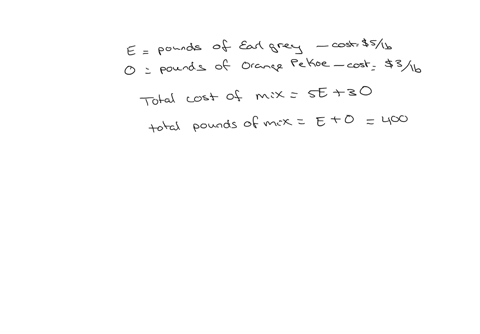 E = pounds of Earl grey – cost: $5/lb
O = pounds of Orange Pekoe – cost: $3/lb
Total cost of mix = 5E + 3O
total pounds of mix = E + O = 400